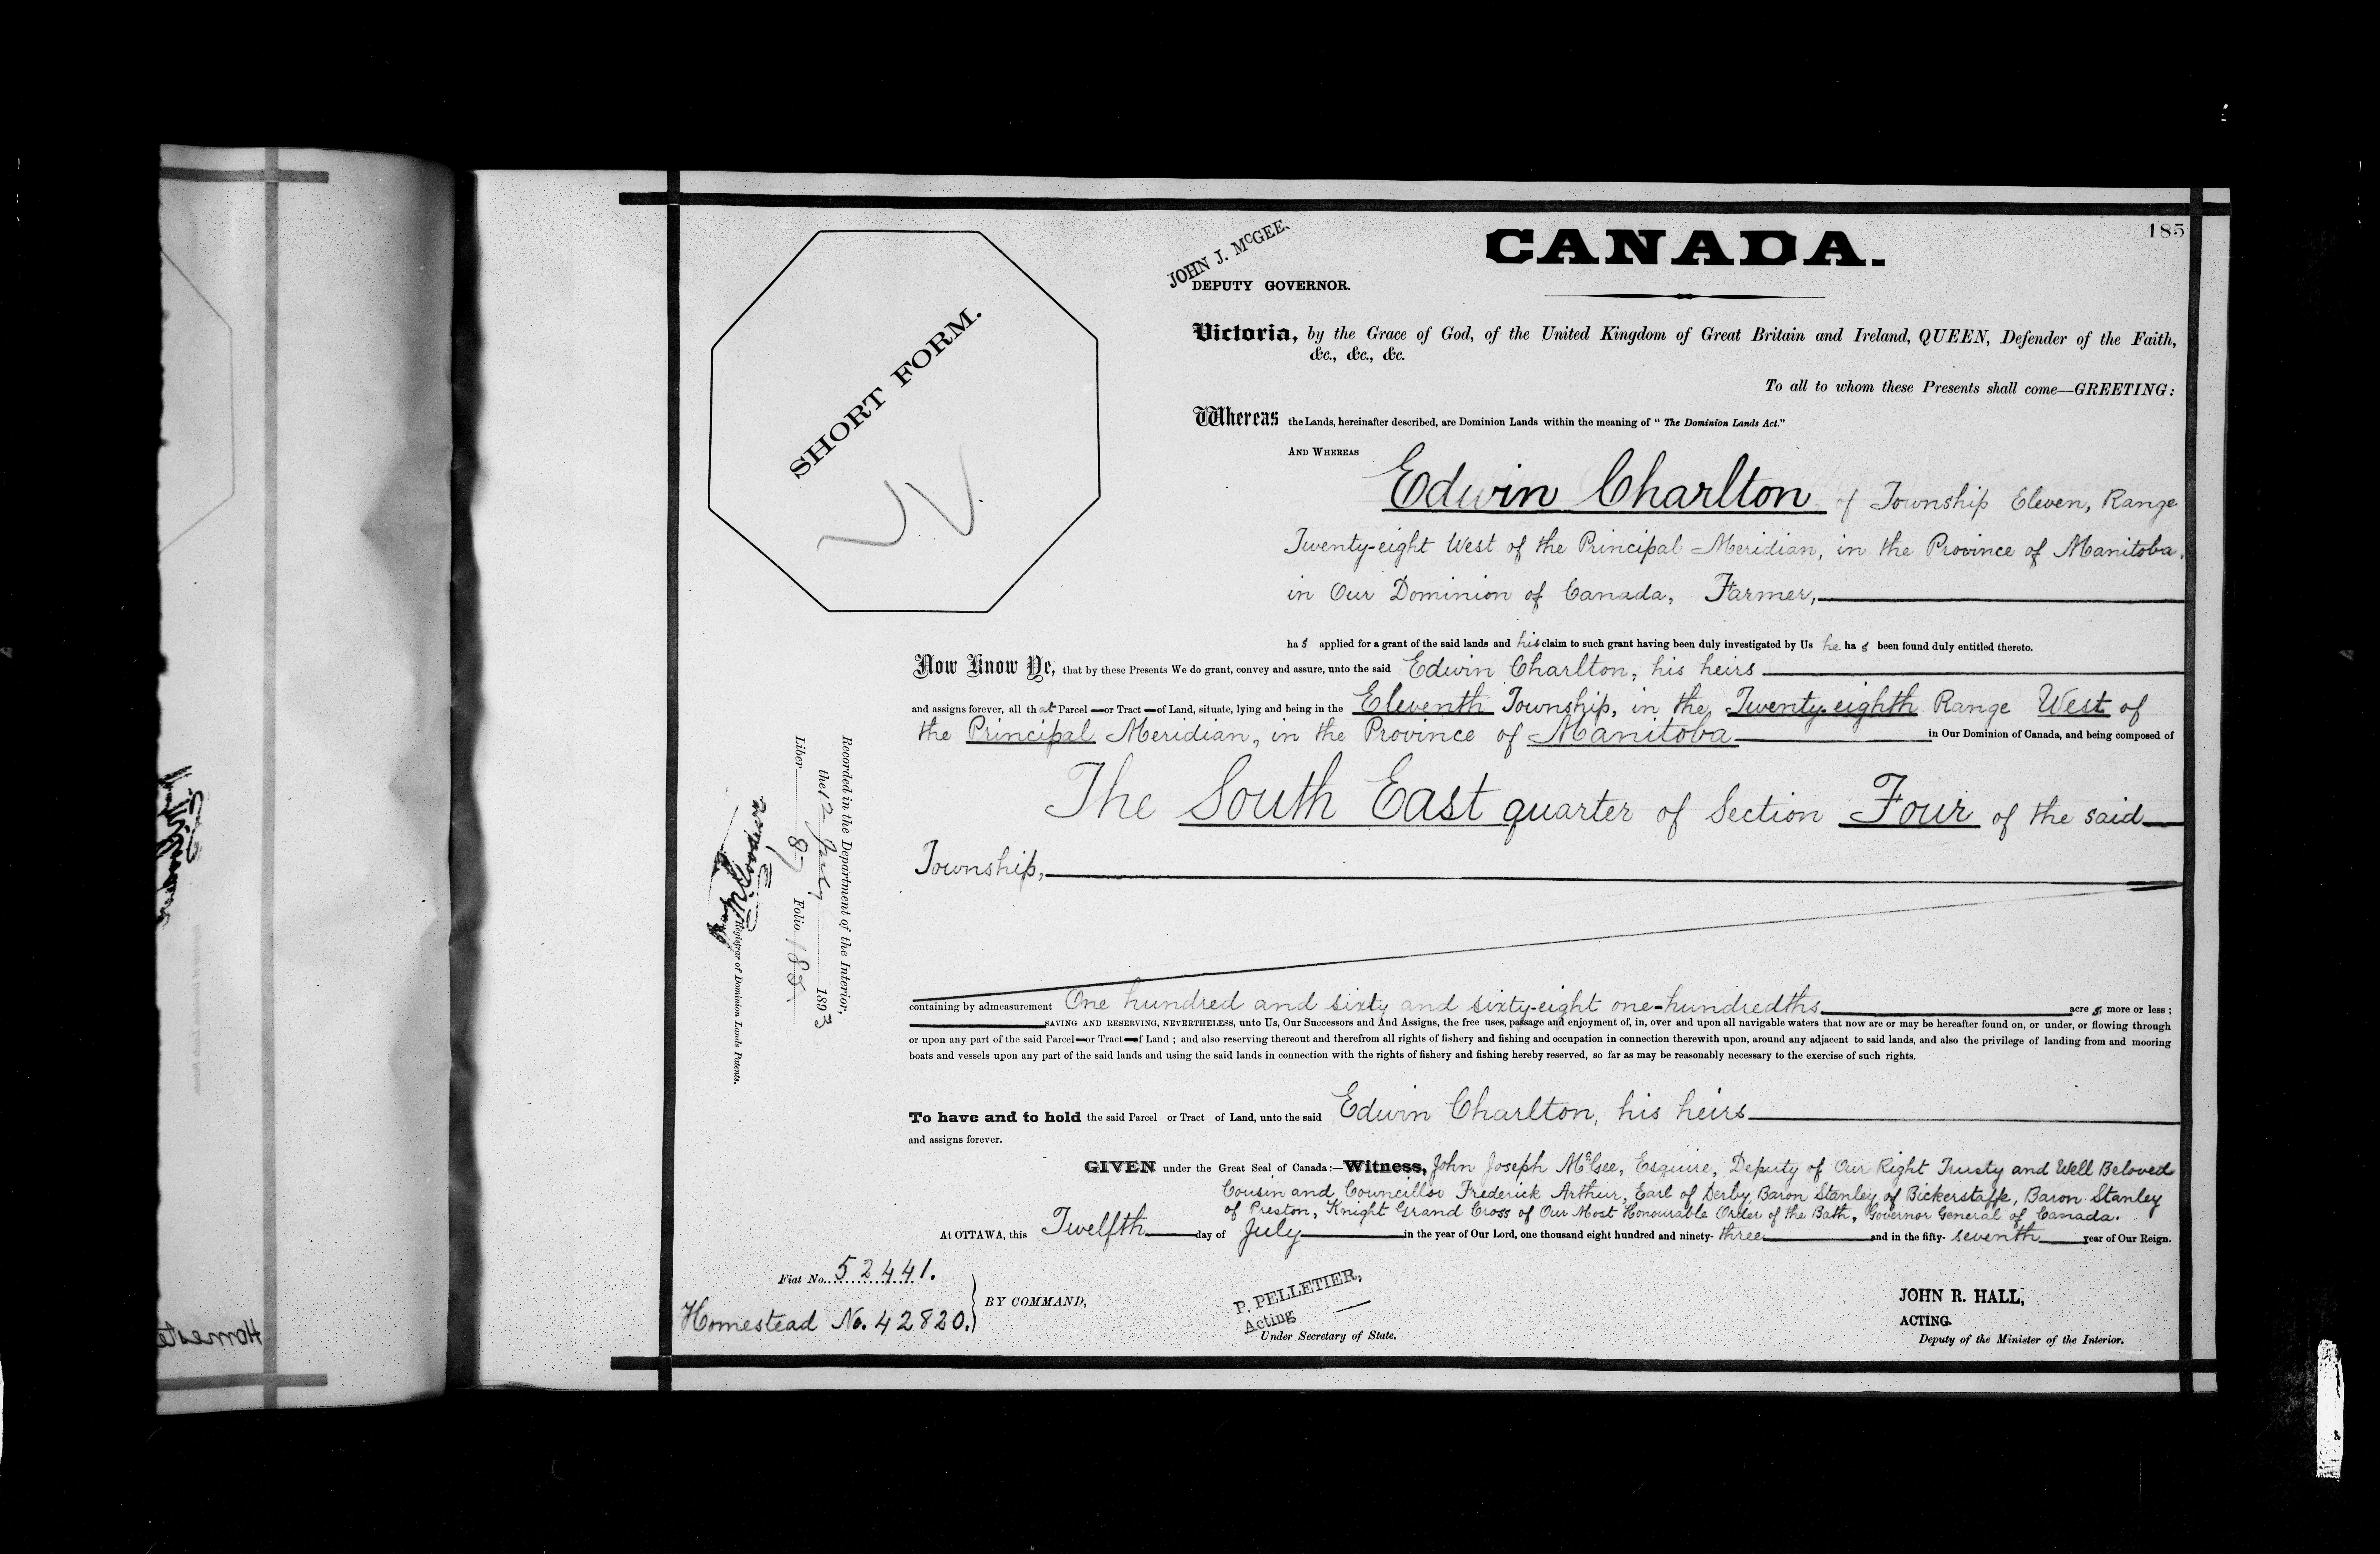 185
CANADA.
JOHN J. McGEE.
DEPUTY GOVERNOR.
SHORT FORM.
Victoria, by the Grace of God, of the United Kingdom of Great Britain and Ireland, QUEEN, Defender of the Faith,
&c., &c., &c.
To all to whom these Presents shall come—GREETING:
Whereas the Lands, hereinafter described, are Dominion Lands within the meaning of "The Dominion Lands Act."
AND WHEREAS
Edwin Charlton of Township Eleven, Range
Twenty-eight West of the Principal Meridian, in the Province of Manitoba,
in Our Dominion of Canada, Farmer,
has applied for a grant of the said lands and his claim to such grant having been duly investigated by Us he has been found duly entitled thereto.
Now Know Ye, that by these Presents We do grant, convey and assure, unto the said Edwin Charlton, his heirs
and assigns forever, all that Parcel or Tract of Land, situate, lying and being in the Eleventh Township, in the Twenty-eighth Range West of
the Principal Meridian, in the Province of Manitoba in Our Dominion of Canada, and being composed of
The South East quarter of Section Four of the said
Township,
containing by admeasurement One hundred and sixty and sixty-eight one-hundredths acres, more or less;
SAVING AND RESERVING, NEVERTHELESS, unto Us, Our Successors and And Assigns, the free uses, passage and enjoyment of, in, over and upon all navigable waters that now are or may be hereafter found on, or under, or flowing through
or upon any part of the said Parcel or Tract of Land; and also reserving thereout and therefrom all rights of fishery and fishing and occupation in connection therewith upon, around any adjacent to said lands, and also the privilege of landing from and mooring
boats and vessels upon any part of the said lands and using the said lands in connection with the rights of fishery and fishing hereby reserved, so far as may be reasonably necessary to the exercise of such rights.
To have and to hold the said Parcel or Tract of Land, unto the said Edwin Charlton, his heirs
and assigns forever.
GIVEN under the Great Seal of Canada:—Witness, John Joseph McGee, Esquire, Deputy of Our Right Trusty and Well Beloved
Cousin and Councillor Frederick Arthur, Earl of Derby, Baron Stanley of Bickerstaffe, Baron Stanley
of Preston, Knight Grand Cross of Our Most Honourable Order of the Bath, Governor General of Canada.
At OTTAWA, this Twelfth day of July in the year of Our Lord, one thousand eight hundred and ninety-three and in the fifty-seventh year of Our Reign.
Fiat No. 52441.
Homestead No. 42820.
BY COMMAND,
P. PELLETIER,
Acting
Under Secretary of State.
JOHN R. HALL,
ACTING.
Deputy of the Minister of the Interior.
Recorded in the Department of the Interior,
the 12 July 1893
Liber 87 Folio 185.
Registrar of Dominion Lands Patents.